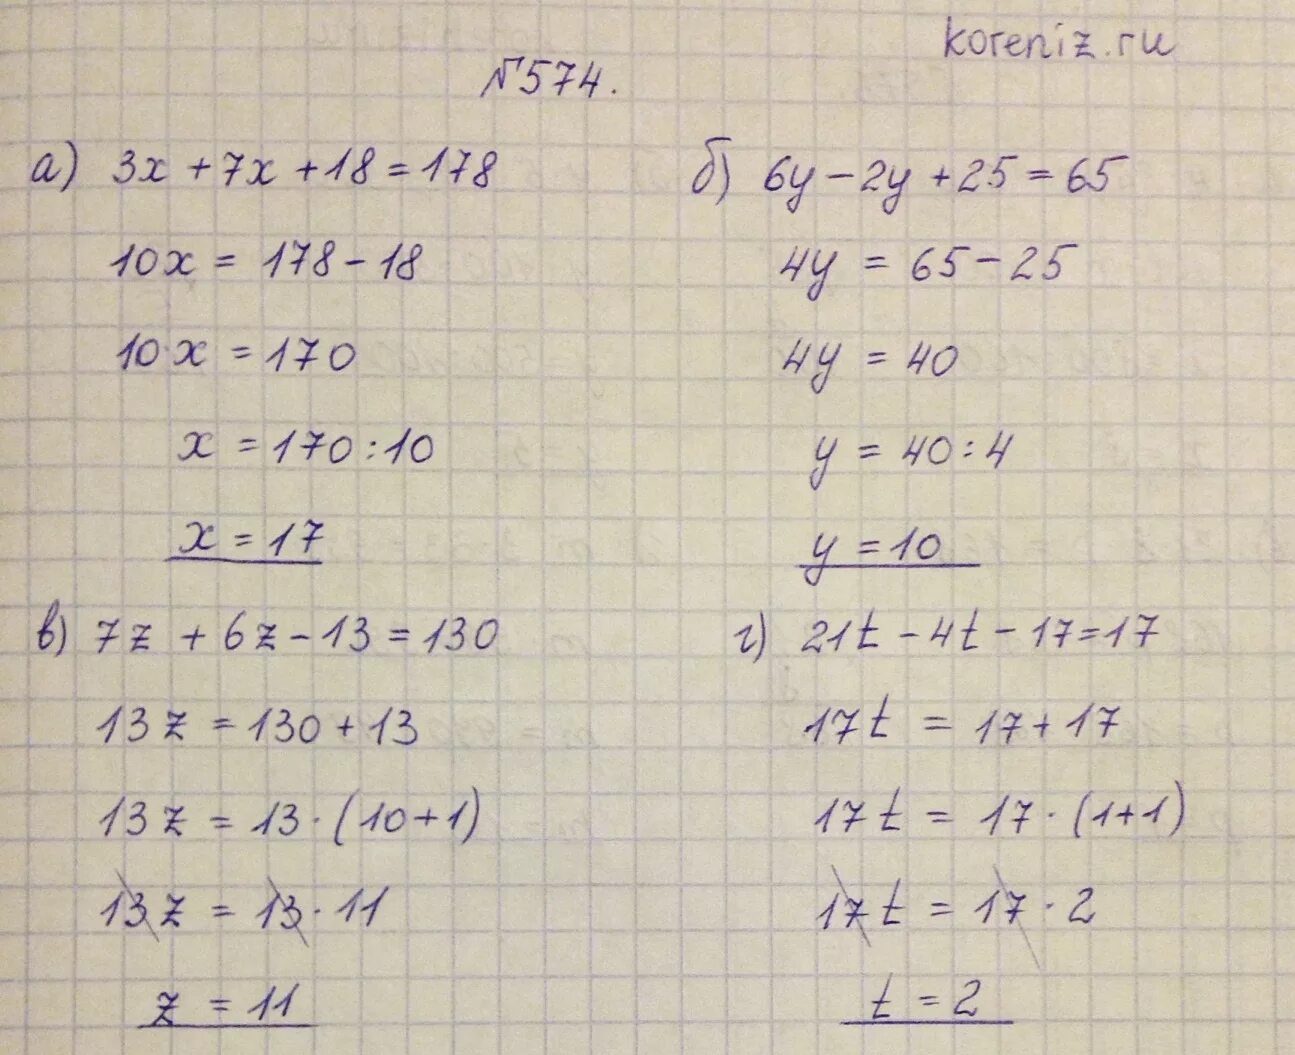 koreniz.ru
№574.
а) 3x + 7x + 18 = 178
10x = 178 - 18
10x = 170
x = 170 : 10
x = 17
б) 6y - 2y + 25 = 65
4y = 65 - 25
4y = 40
y = 40 : 4
y = 10
в) 7z + 6z - 13 = 130
13z = 130 + 13
13z = 13 · (10 + 1)
13z = 13 · 11
z = 11
г) 21t - 4t - 17 = 17
17t = 17 + 17
17t = 17 · (1 + 1)
17t = 17 · 2
t = 2